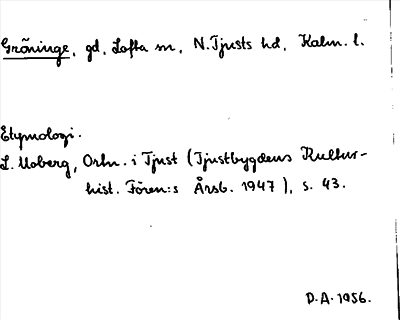 Gröninge, gd, Lofta sn, N. Tjusts hd, Kalm. l.
Etymologi.
L. Moberg, Ortn. i Tjust (Tjustbygdens Kultur-
hist. Fören:s Årsb. 1947), s. 43.
D.A. 1956.